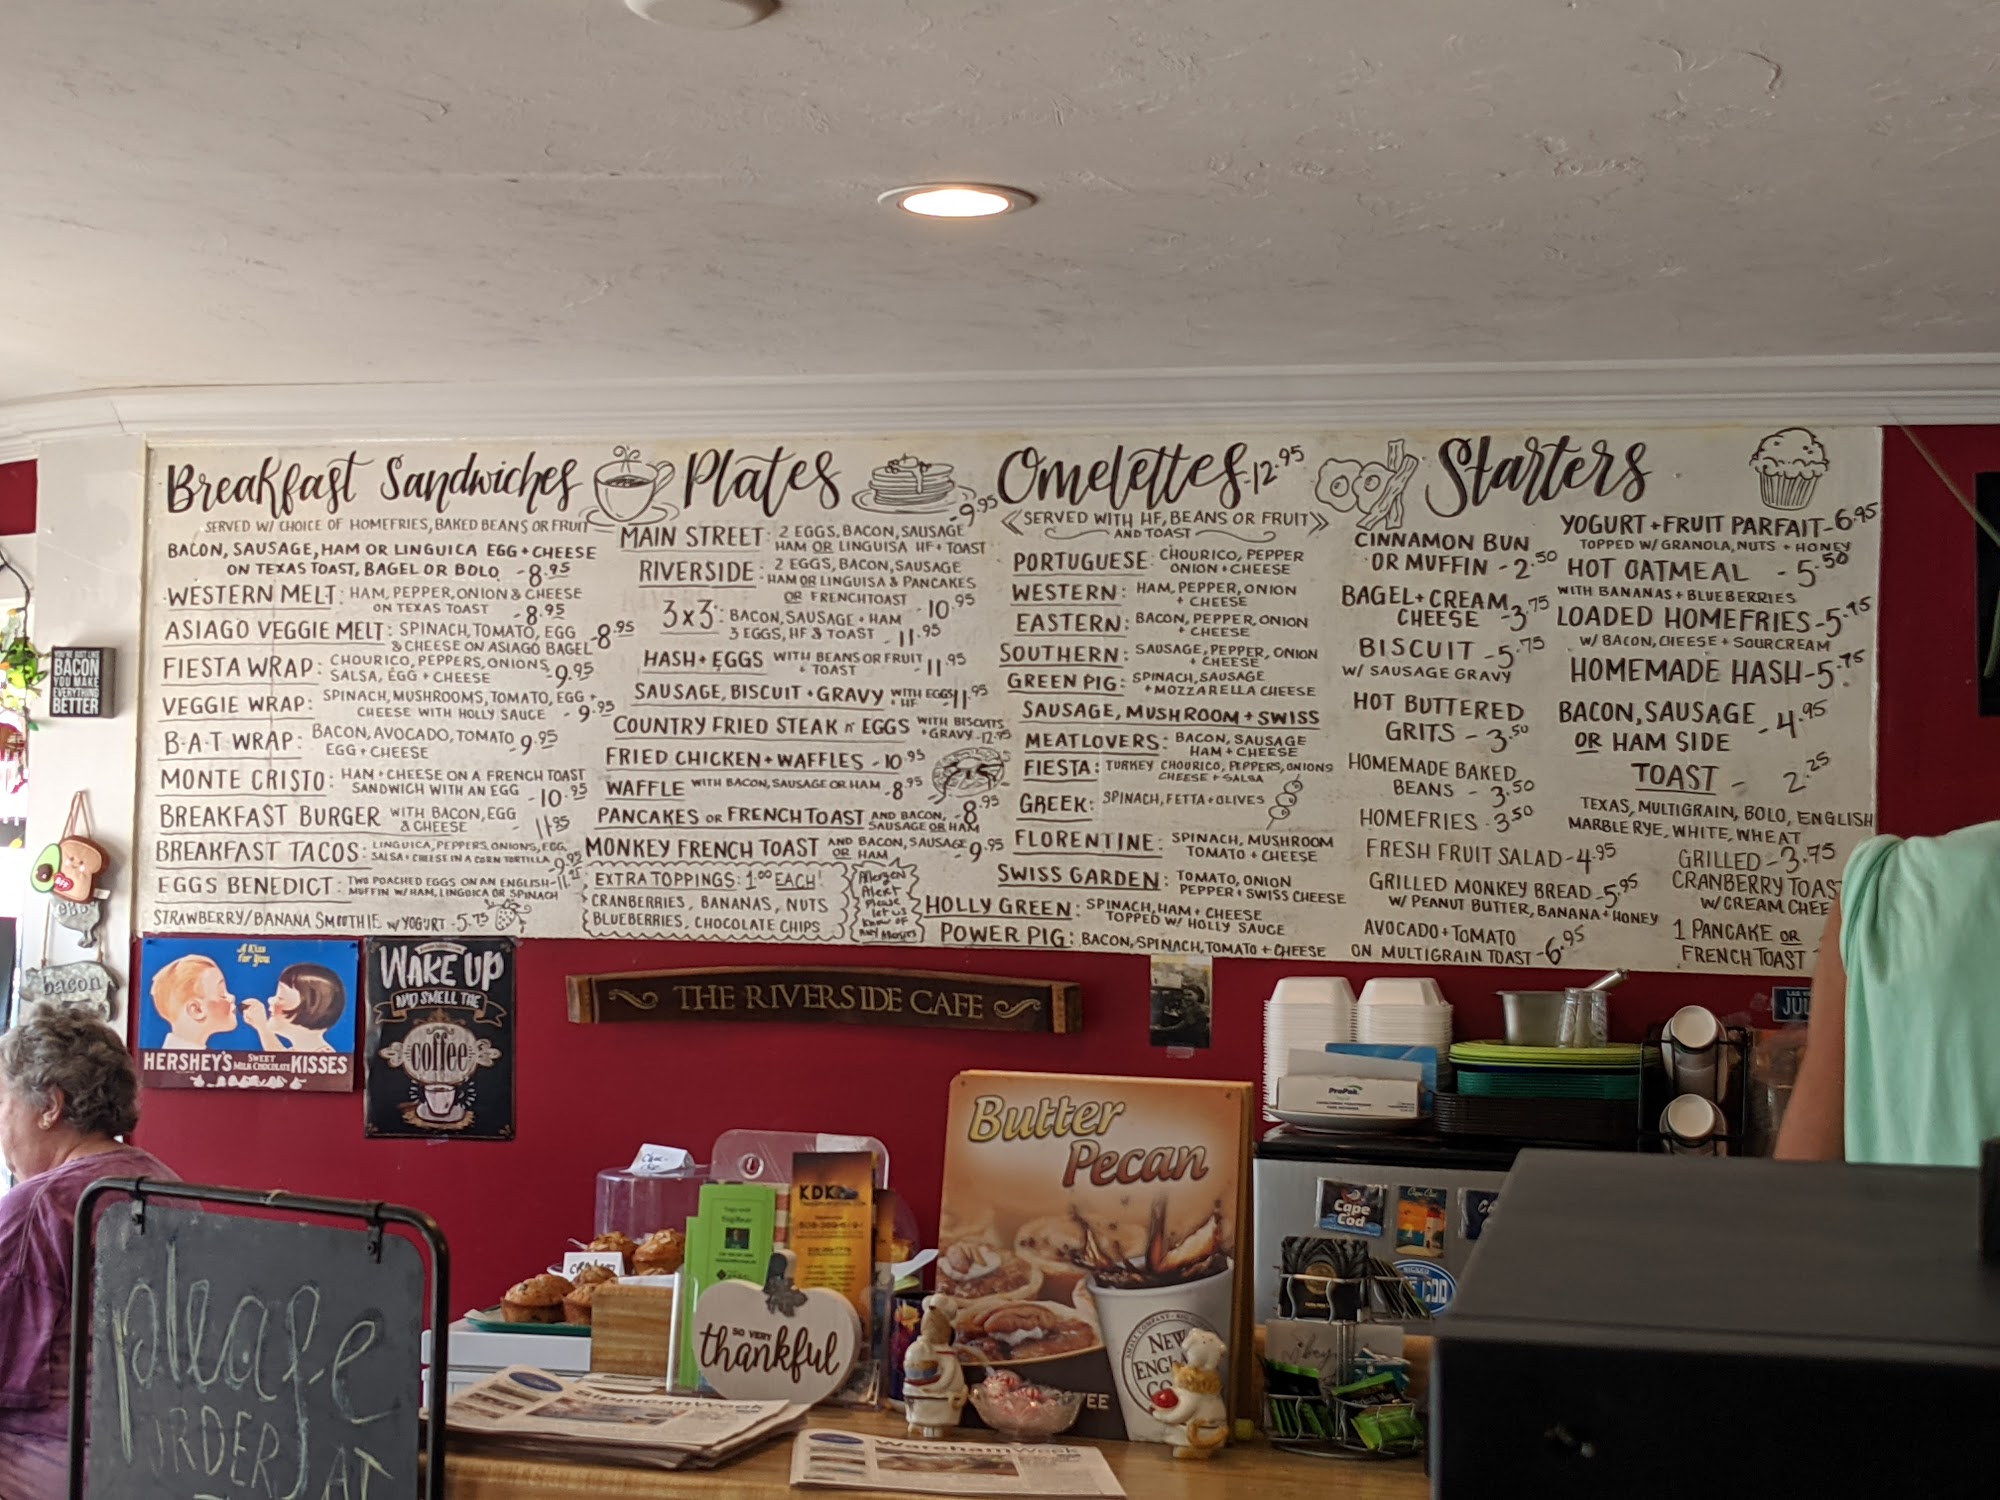 Breakfast Sandwiches
SERVED W/ CHOICE OF HOMEFRIES, BAKED BEANS OR FRUIT
BACON, SAUSAGE, HAM OR LINGUICA EGG + CHEESE
ON TEXAS TOAST, BAGEL OR BOLO - 8.95
WESTERN MELT: HAM, PEPPER, ONION & CHEESE
ON TEXAS TOAST - 8.95
ASIAGO VEGGIE MELT: SPINACH, TOMATO, EGG
& CHEESE ON ASIAGO BAGEL - 8.95
FIESTA WRAP: CHOURICO, PEPPERS, ONIONS
SALSA, EGG + CHEESE - 9.95
VEGGIE WRAP: SPINACH, MUSHROOMS, TOMATO, EGG +
CHEESE WITH HOLLY SAUCE - 9.95
B·A·T WRAP: BACON, AVOCADO, TOMATO
EGG + CHEESE - 9.95
MONTE CRISTO: HAM + CHEESE ON A FRENCH TOAST
SANDWICH WITH AN EGG - 10.95
BREAKFAST BURGER WITH BACON, EGG
& CHEESE - 11.95
BREAKFAST TACOS: LINGUICA, PEPPERS, ONIONS, EGG,
SALSA + CHEESE IN A CORN TORTILLA - 9.95
EGGS BENEDICT: TWO POACHED EGGS ON AN ENGLISH - 11.95
MUFFIN W/ HAM, LINGUICA OR SPINACH
STRAWBERRY/BANANA SMOOTHIE W/ YOGURT - 5.75
Plates
MAIN STREET: 2 EGGS, BACON, SAUSAGE - 9.95
HAM OR LINGUISA HF + TOAST
RIVERSIDE: 2 EGGS, BACON, SAUSAGE
HAM OR LINGUISA & PANCAKES
OR FRENCH TOAST - 10.95
3x3: BACON, SAUSAGE + HAM
3 EGGS, HF & TOAST - 11.95
HASH + EGGS WITH BEANS OR FRUIT
+ TOAST - 11.95
SAUSAGE, BISCUIT + GRAVY WITH EGGS + HF 11.95
COUNTRY FRIED STEAK n' EGGS WITH BISCUITS
+ GRAVY - 12.95
FRIED CHICKEN + WAFFLES - 10.95
WAFFLE WITH BACON, SAUSAGE OR HAM - 8.95
PANCAKES OR FRENCH TOAST AND BACON,
SAUSAGE OR HAM - 8.95
MONKEY FRENCH TOAST AND BACON, SAUSAGE
OR HAM - 9.95
EXTRA TOPPINGS: 1.00 EACH!
CRANBERRIES, BANANAS, NUTS
BLUEBERRIES, CHOCOLATE CHIPS
Allergen
Alert
Please
let us
know of
Omelettes - 12.95
SERVED WITH HF, BEANS OR FRUIT
AND TOAST
PORTUGUESE: CHOURICO, PEPPER
ONION + CHEESE
WESTERN: HAM, PEPPER, ONION
+ CHEESE
EASTERN: BACON, PEPPER, ONION
+ CHEESE
SOUTHERN: SAUSAGE, PEPPER, ONION
+ CHEESE
GREEN PIG: SPINACH, SAUSAGE
+ MOZZARELLA CHEESE
SAUSAGE, MUSHROOM + SWISS
MEATLOVERS: BACON, SAUSAGE
HAM + CHEESE
FIESTA: TURKEY CHOURICO, PEPPERS, ONIONS
CHEESE + SALSA
GREEK: SPINACH, FETTA + OLIVES
FLORENTINE: SPINACH, MUSHROOM
TOMATO + CHEESE
SWISS GARDEN: TOMATO, ONION
PEPPER + SWISS CHEESE
HOLLY GREEN: SPINACH, HAM + CHEESE
TOPPED W/ HOLLY SAUCE
POWER PIG: BACON, SPINACH, TOMATO + CHEESE
Starters
CINNAMON BUN
OR MUFFIN - 2.50
BAGEL + CREAM
CHEESE - 3.75
BISCUIT - 5.75
W/ SAUSAGE GRAVY
HOT BUTTERED
GRITS - 3.50
HOMEMADE BAKED
BEANS - 3.50
HOMEFRIES - 3.50
FRESH FRUIT SALAD - 4.95
GRILLED MONKEY BREAD - 5.95
W/ PEANUT BUTTER, BANANA + HONEY
AVOCADO + TOMATO
ON MULTIGRAIN TOAST - 6.95
YOGURT + FRUIT PARFAIT - 6.95
TOPPED W/ GRANOLA, NUTS + HONEY
HOT OATMEAL - 5.50
WITH BANANAS + BLUEBERRIES
LOADED HOMEFRIES - 5.75
W/ BACON, CHEESE + SOURCREAM
HOMEMADE HASH - 5.75
BACON, SAUSAGE
OR HAM SIDE - 4.95
TOAST - 2.25
TEXAS, MULTIGRAIN, BOLO, ENGLISH
MARBLE RYE, WHITE, WHEAT
GRILLED - 3.75
CRANBERRY TOAS
W/ CREAM CHEE
1 PANCAKE OR
FRENCH TOAST
YOU'RE JUST LIKE
BACON
YOU MAKE
EVERYTHING
BETTER
BFF
eggs
bacon
A Kiss
for You
HERSHEY'S SWEET MILK CHOCOLATE KISSES
WAKE UP
AND SMELL THE
coffee
THE RIVERSIDE CAFE
Butter
Pecan
NEW
ENGL
CO
EE
ProPak
JUL
Cape
Cod
KDK
SO VERY
thankful
Wareham Week
please
ORDER AT